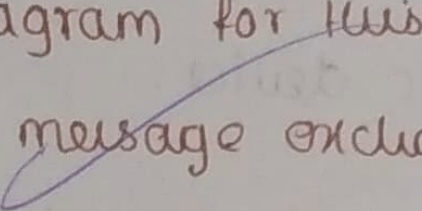 agram for this
message exchu